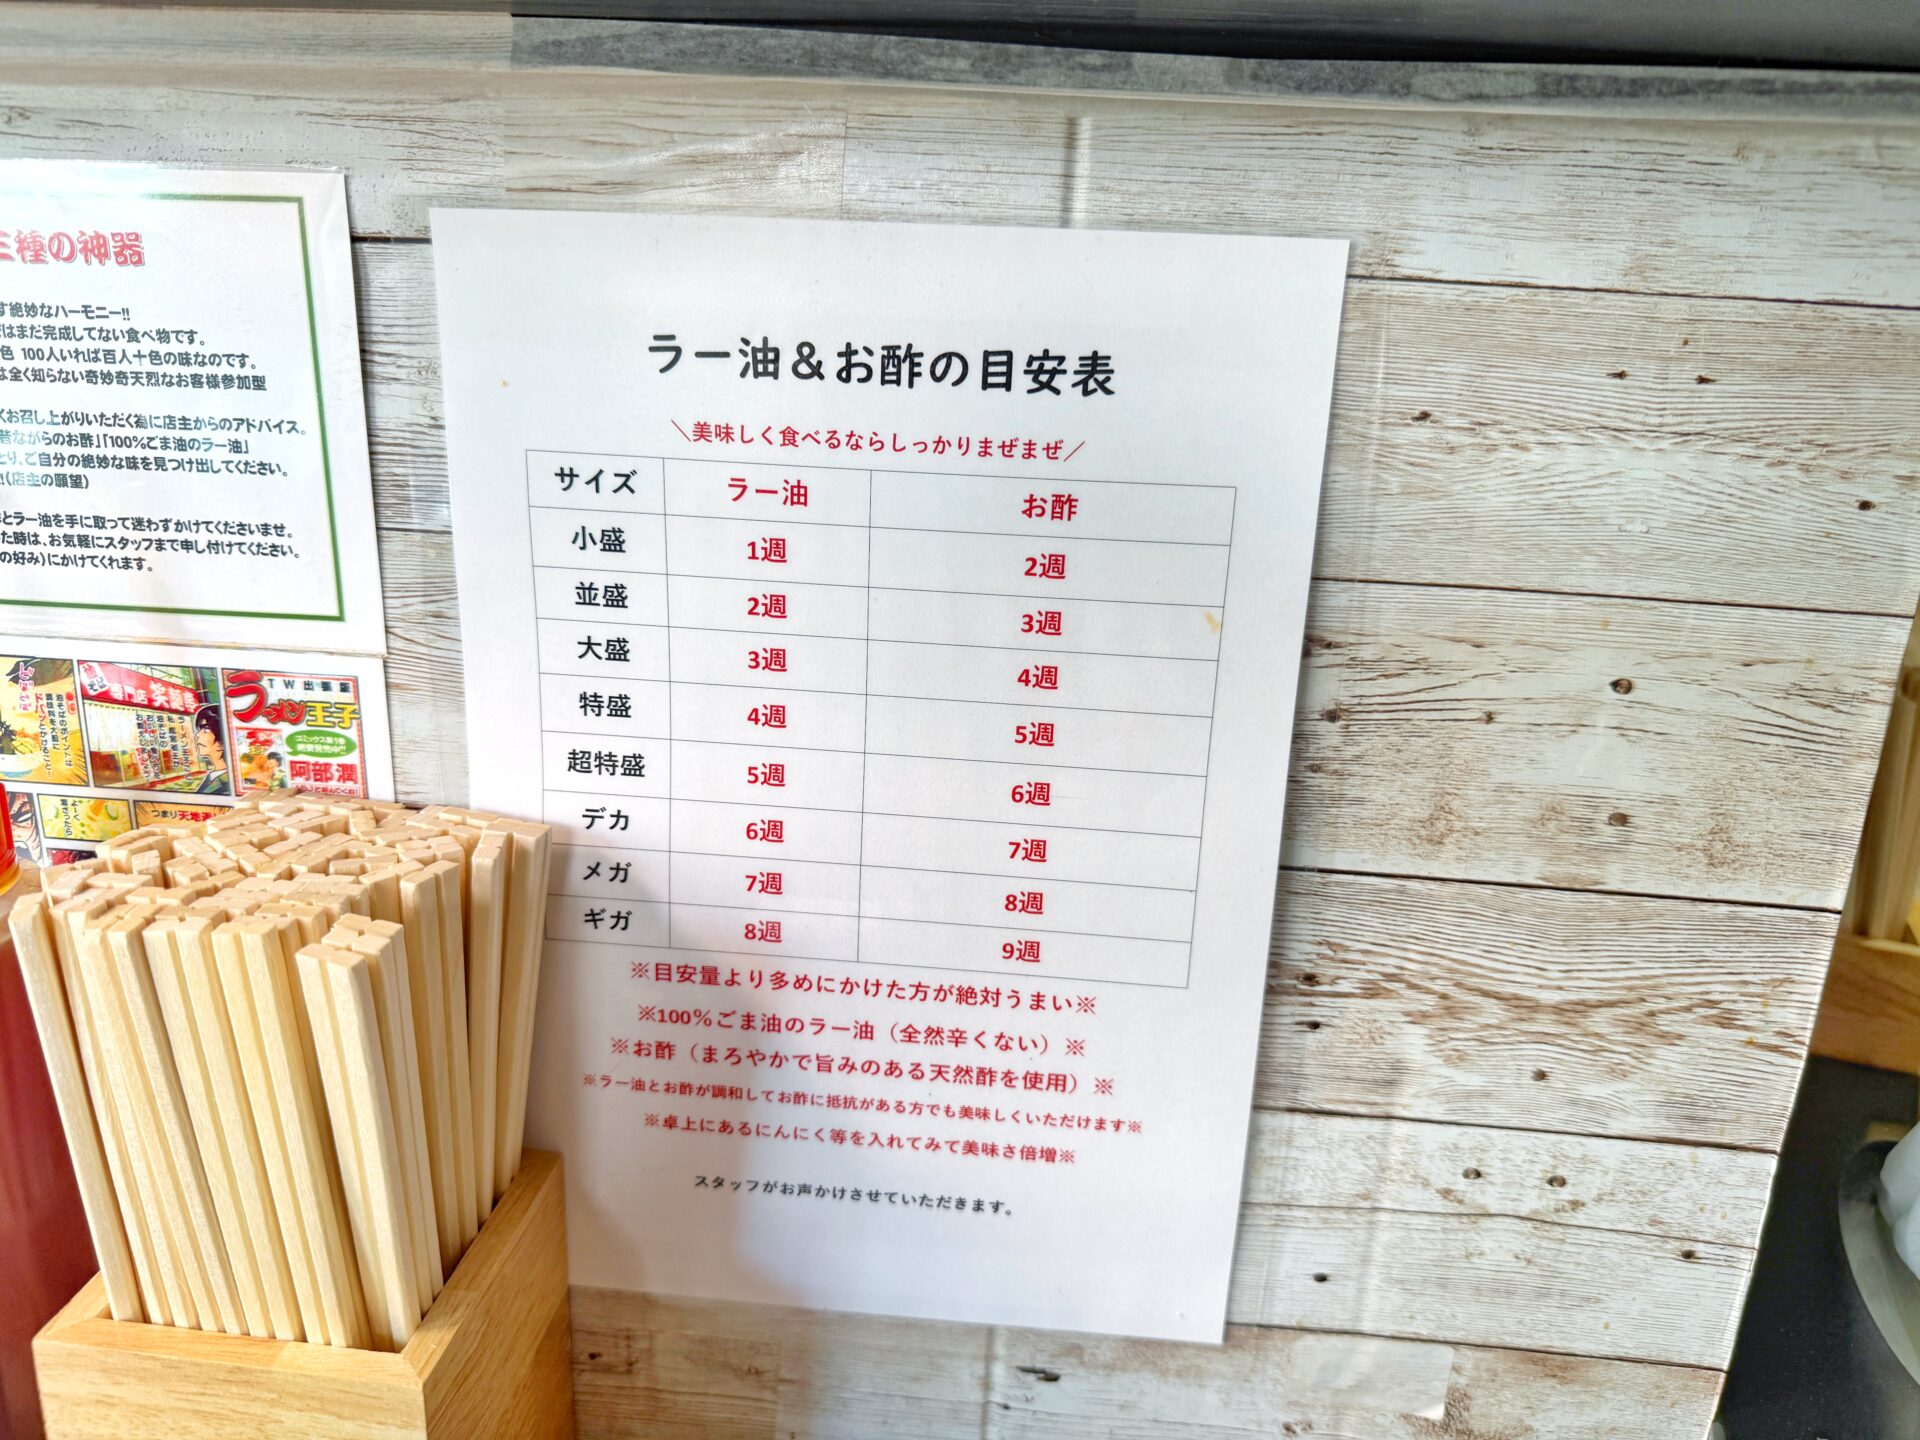 三種の神器
す絶妙なハーモニー!!
はまだ完成してない食べ物です。
色 100人いれば百人十色の味なのです。
は全く知らない奇妙奇天烈なお客様参加型
くお召し上がりいただく為に店主からのアドバイス。
昔ながらのお酢」「100%ごま油のラー油」
とり、ご自分の絶妙な味を見つけ出してください。
!(店主の願望)
とラー油を手に取って迷わずかけてくださいませ。
た時は、お気軽にスタッフまで申し付けてください。
の好み)にかけてくれます。
専門店 笑
TW出張版
ラーメン王子
コミックス第1巻
絶賛発売中!!
阿部潤
よーく
混ざったら
つまり天地
ラー油&お酢の目安表
＼美味しく食べるならしっかりまぜまぜ／
サイズ ラー油 お酢
小盛 1週 2週
並盛 2週 3週
大盛 3週 4週
特盛 4週 5週
超特盛 5週 6週
デカ 6週 7週
メガ 7週 8週
ギガ 8週 9週
※目安量より多めにかけた方が絶対うまい※
※100％ごま油のラー油（全然辛くない）※
※お酢（まろやかで旨みのある天然酢を使用）※
※ラー油とお酢が調和してお酢に抵抗がある方でも美味しくいただけます※
※卓上にあるにんにく等を入れてみて美味さ倍増※
スタッフがお声かけさせていただきます。